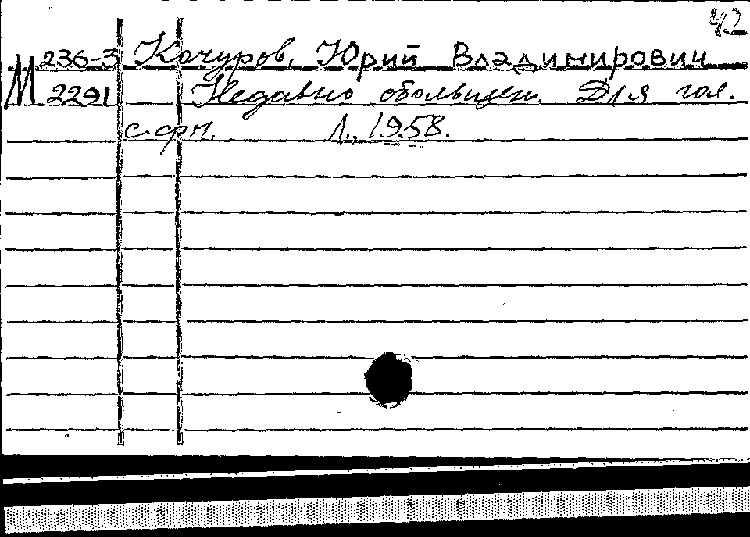 42
236-3 Кочуров, Юрий Владимирович
М 2291 Недавно обольщен. Для гол.
с фп. Л., 1958.